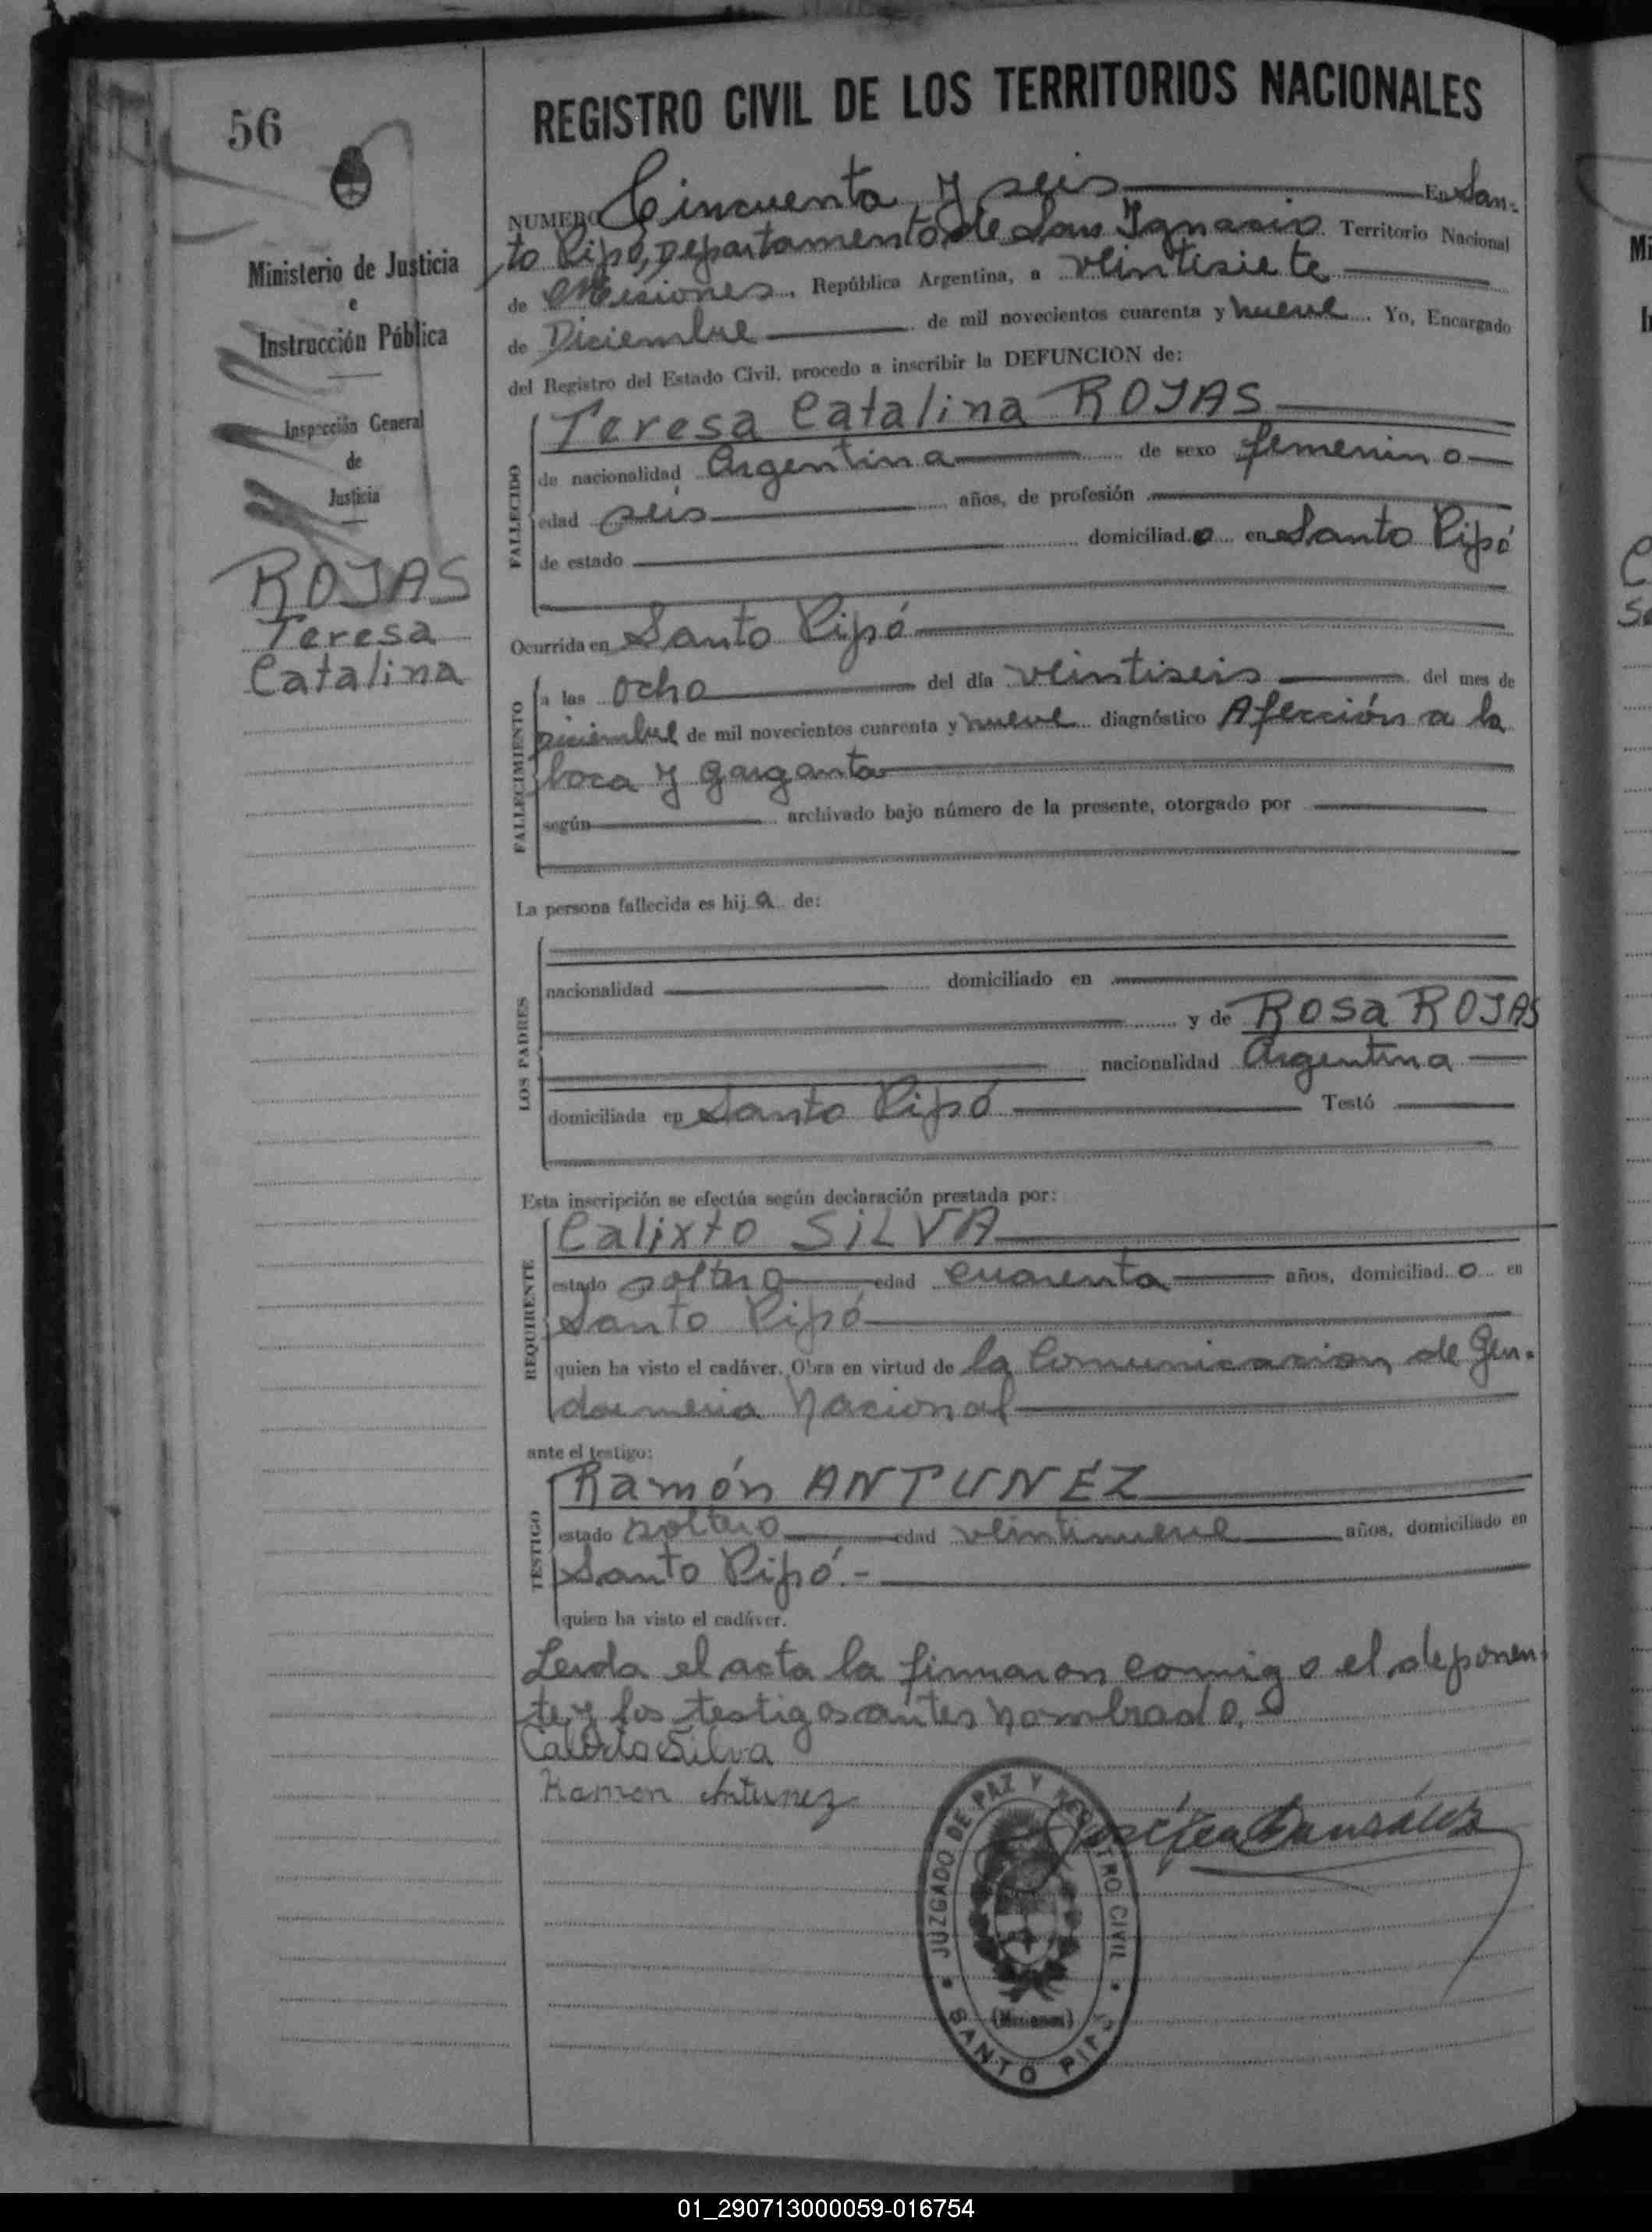 56
Ministerio de Justicia
e
Instrucción Pública
Inspección General
de
Justicia
ROJAS
Teresa
Catalina
REGISTRO CIVIL DE LOS TERRITORIOS NACIONALES
NUMERO Cincuenta y seis En San-
to Pipó, Departamento de San Ignacio. Territorio Nacional
de Misiones, República Argentina, a veintisiete
de Diciembre de mil novecientos cuarenta y nueve. Yo, Encargado
del Registro del Estado Civil, procedo a inscribir la DEFUNCION de:
FALLECIDO
Teresa Catalina ROJAS
de nacionalidad Argentina de sexo femenino
edad seis años, de profesión
de estado domiciliad o en Santo Pipó
Ocurrida en Santo Pipó
FALLECIMIENTO
a las ocho del día veintiseis del mes de
Diciembre de mil novecientos cuarenta y nueve diagnóstico Afección a la
boca y garganta
según archivado bajo número de la presente, otorgado por
La persona fallecida es hij a de:
LOS PADRES
nacionalidad domiciliado en
y de Rosa ROJAS
nacionalidad Argentina
domiciliada en Santo Pipó Testó
Esta inscripción se efectúa según declaración prestada por:
REQUIRENTE
Calixto SILVA
estado soltero edad cuarenta años, domiciliad o en
Santo Pipó
quien ha visto el cadáver. Obra en virtud de la Comunicacion de Gen-
darmeria Nacional
ante el testigo:
TESTIGO
Ramón ANTUNEZ
estado soltero edad veintinueve años, domiciliado en
Santo Pipó.-
quien ha visto el cadáver.
Leida el acta la firmaron conmigo el deponen-
te y los testigos antes nombrado.
Calixto Silva
Ramon Antunez
JUZGADO DE PAZ Y REGISTRO CIVIL
(Misiones)
SANTO PIPÓ
01_290713000059-016754